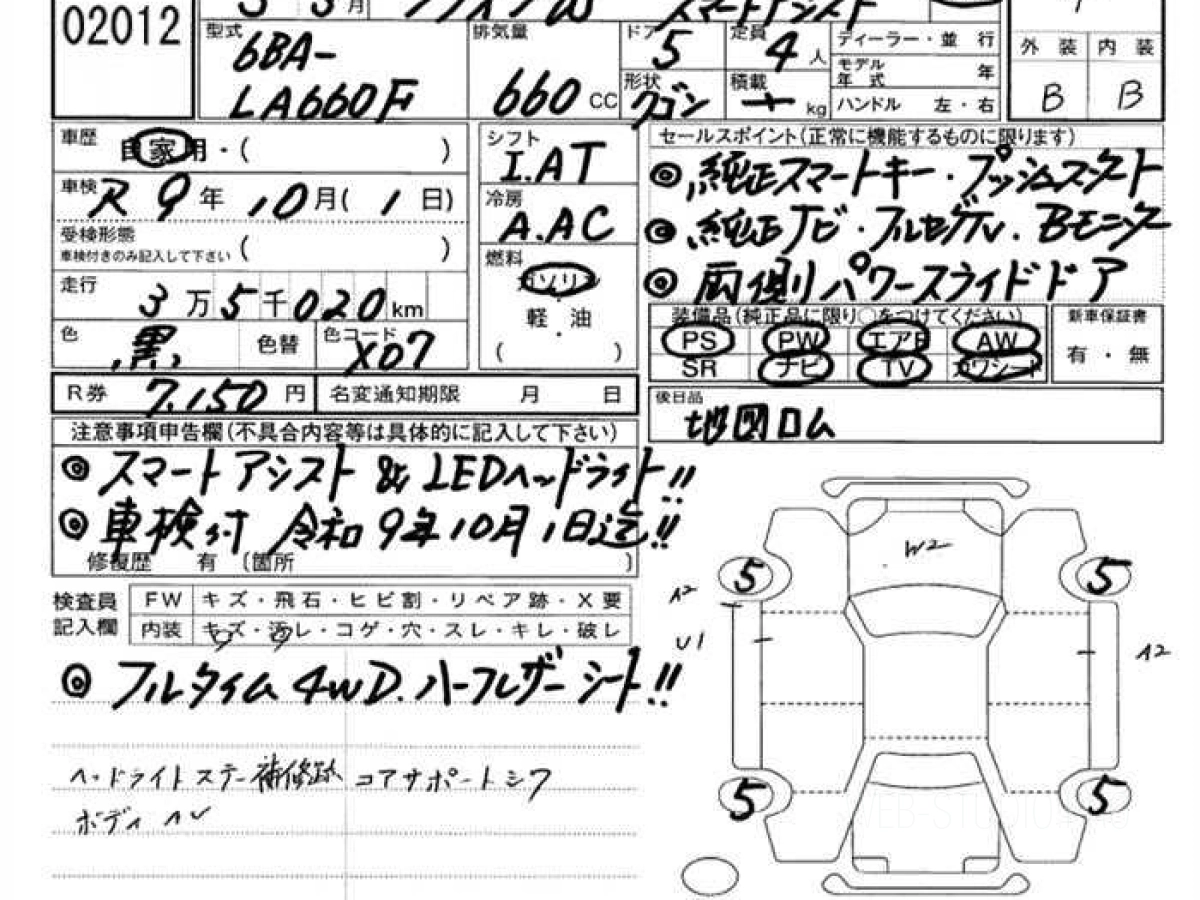 02012
型式 排気量 ドア 5 定員 4 人 ディーラー・並 行
6BA-
モデル年式 年
外 装 内 装
LA660F 660 CC 形状 ワゴン 積載 kg ハンドル 左・右
B B
車歴 自家用・( )
シフト I.AT
セールスポイント(正常に機能するものに限ります)
◎純正スマートキー・プッシュスタート
車検 R 9年 10月( 1日)
冷房 A.AC
◎純正ナビ・フルセグTV.Bモニター
受検形態
車検付きのみ記入して下さい ( )
燃料 ガソリン
・
軽・油
( )
◎両側パワースライドドア
走行 3万5千020km
装備品(純正品に限り○をつけてください) 新車保証書
PS PW エアB AW
有・無
色 黒 色替 色コード X07
SR ナビ TV カワシート
R券 7,150円 名変通知期限 月 日
後日品
地図ロム
注意事項申告欄(不具合内容等は具体的に記入して下さい)
◎スマートアシスト & LEDヘッドライト!!
◎車検付 令和9年10月1日迄!!
修復歴 有 〔箇所 〕
検査員記入欄
FW キズ・飛石・ヒビ割・リペア跡・X要
内装 キズ・汚レ・コゲ・穴・スレ・キレ・破レ
◎フルタイム4WD.ハーフレザーシート!!
ヘッドライトステー補修跡 コアサポートシワ
W2
5 5
A2
U1
A2
5 5